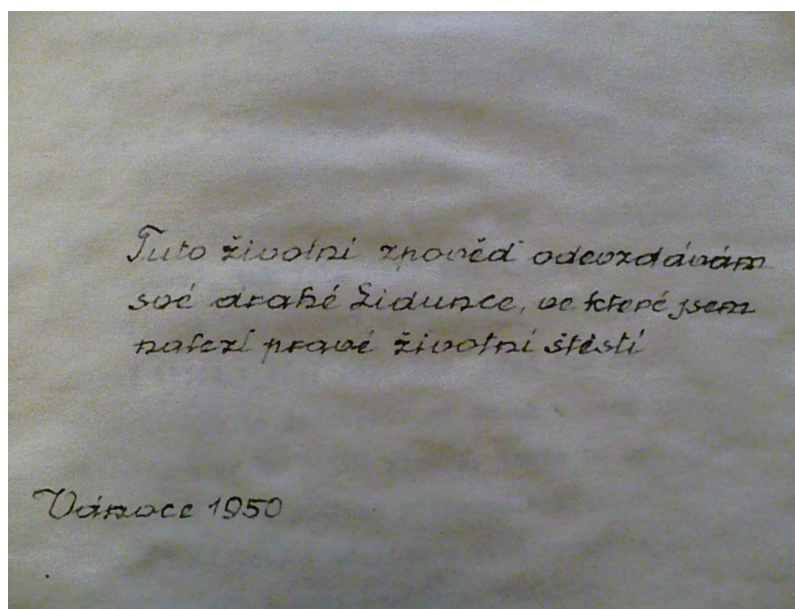 Tuto životní zpověď odevzdávám
své drahé Lidunce, ve které jsem
nalezl pravé životní štěstí
Vánoce 1950